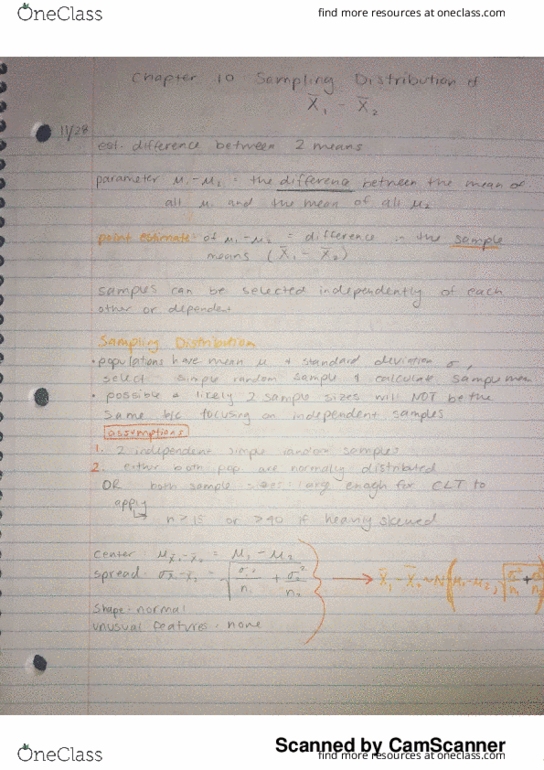 OneClass
find more resources at oneclass.com
Chapter 10 Sampling Distribution of
X̄₁ - X̄₂
11/28
est. difference between 2 means
parameter μ₁-μ₂ = the difference between the mean of
all μ₁ and the mean of all μ₂
point estimate of μ₁-μ₂ = difference in the sample
means (X̄₁ - X̄₂)
samples can be selected independently of each
other or dependent
Sampling Distribution
• populations have mean μ + standard deviation σ,
select simple random sample & calculate sample mean
• possible & likely 2 sample sizes will NOT be the
same b/c focusing on independent samples
assumptions
1. 2 independent simple random samples
2. either both pop. are normally distributed
OR both sample sizes large enough for CLT to
apply
↳ n ≥ 15 or ≥ 40 if heavily skewed
center: μx̄₁-x̄₂ = μ₁ - μ₂
spread: σx̄-x̄₂ = √(σ₁²/n₁ + σ₂²/n₂) → X̄₁ - X̄₂ ~ N(μ₁-μ₂, √(σ₁²/n₁ +
shape: normal
unusual features: none
Scanned by CamScanner
OneClass
find more resources at oneclass.com